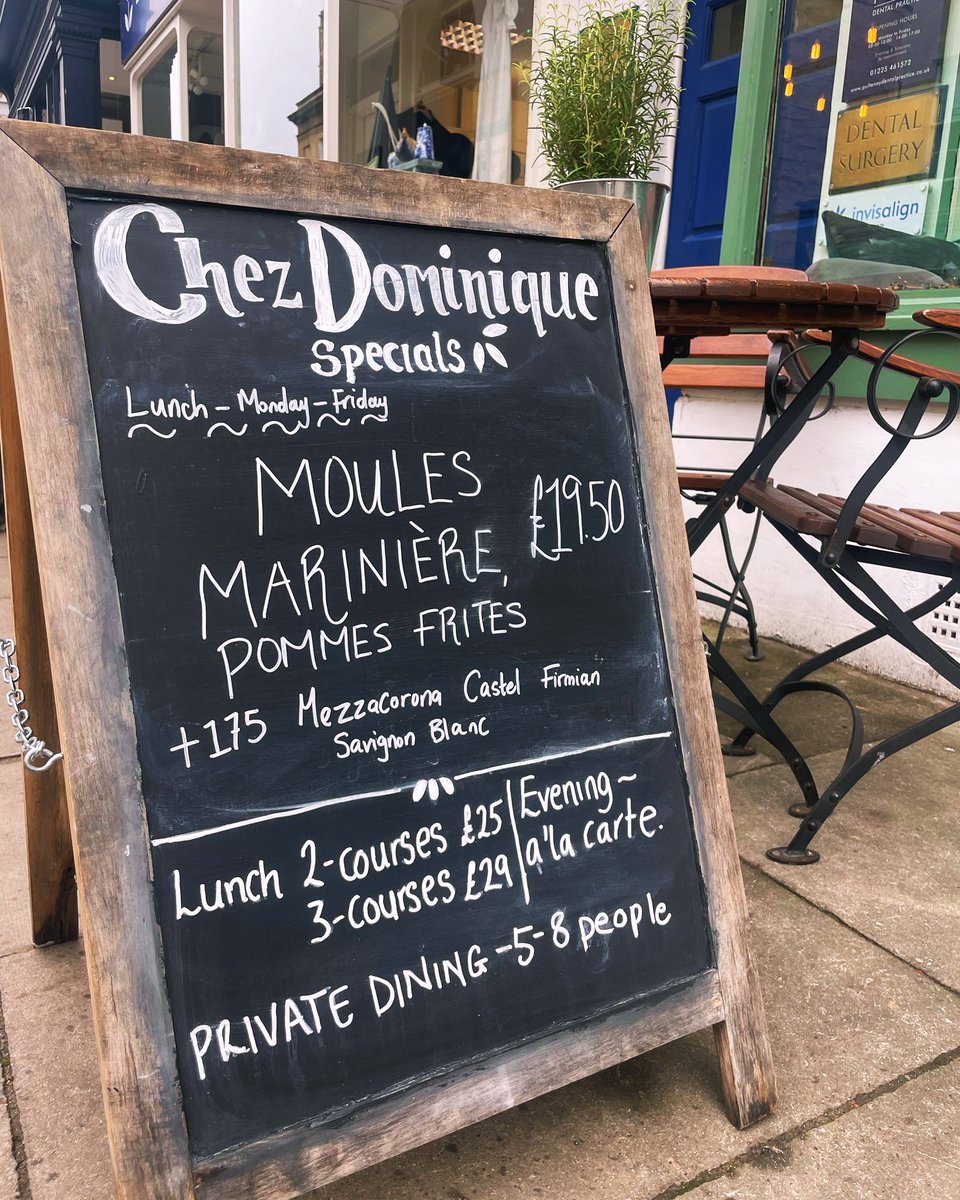 Chez Dominique
Specials
Lunch - Monday - Friday
MOULES
MARINIÈRE,
£19.50
POMMES FRITES
+175 Mezzacorona Castel Firmian
Savignon Blanc
Lunch 2-courses £25
3-courses £29
Evening ~
a'la carte.
PRIVATE DINING - 5-8 people
DENTAL PRACTICE
OPENING HOURS
Monday to Friday
01225 461572
www.pulteneydentalpractice.co.uk
DENTAL
SURGERY
invisalign